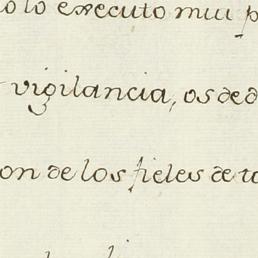 lo executo mui p
vigilancia, os de d
on de los fieles de to